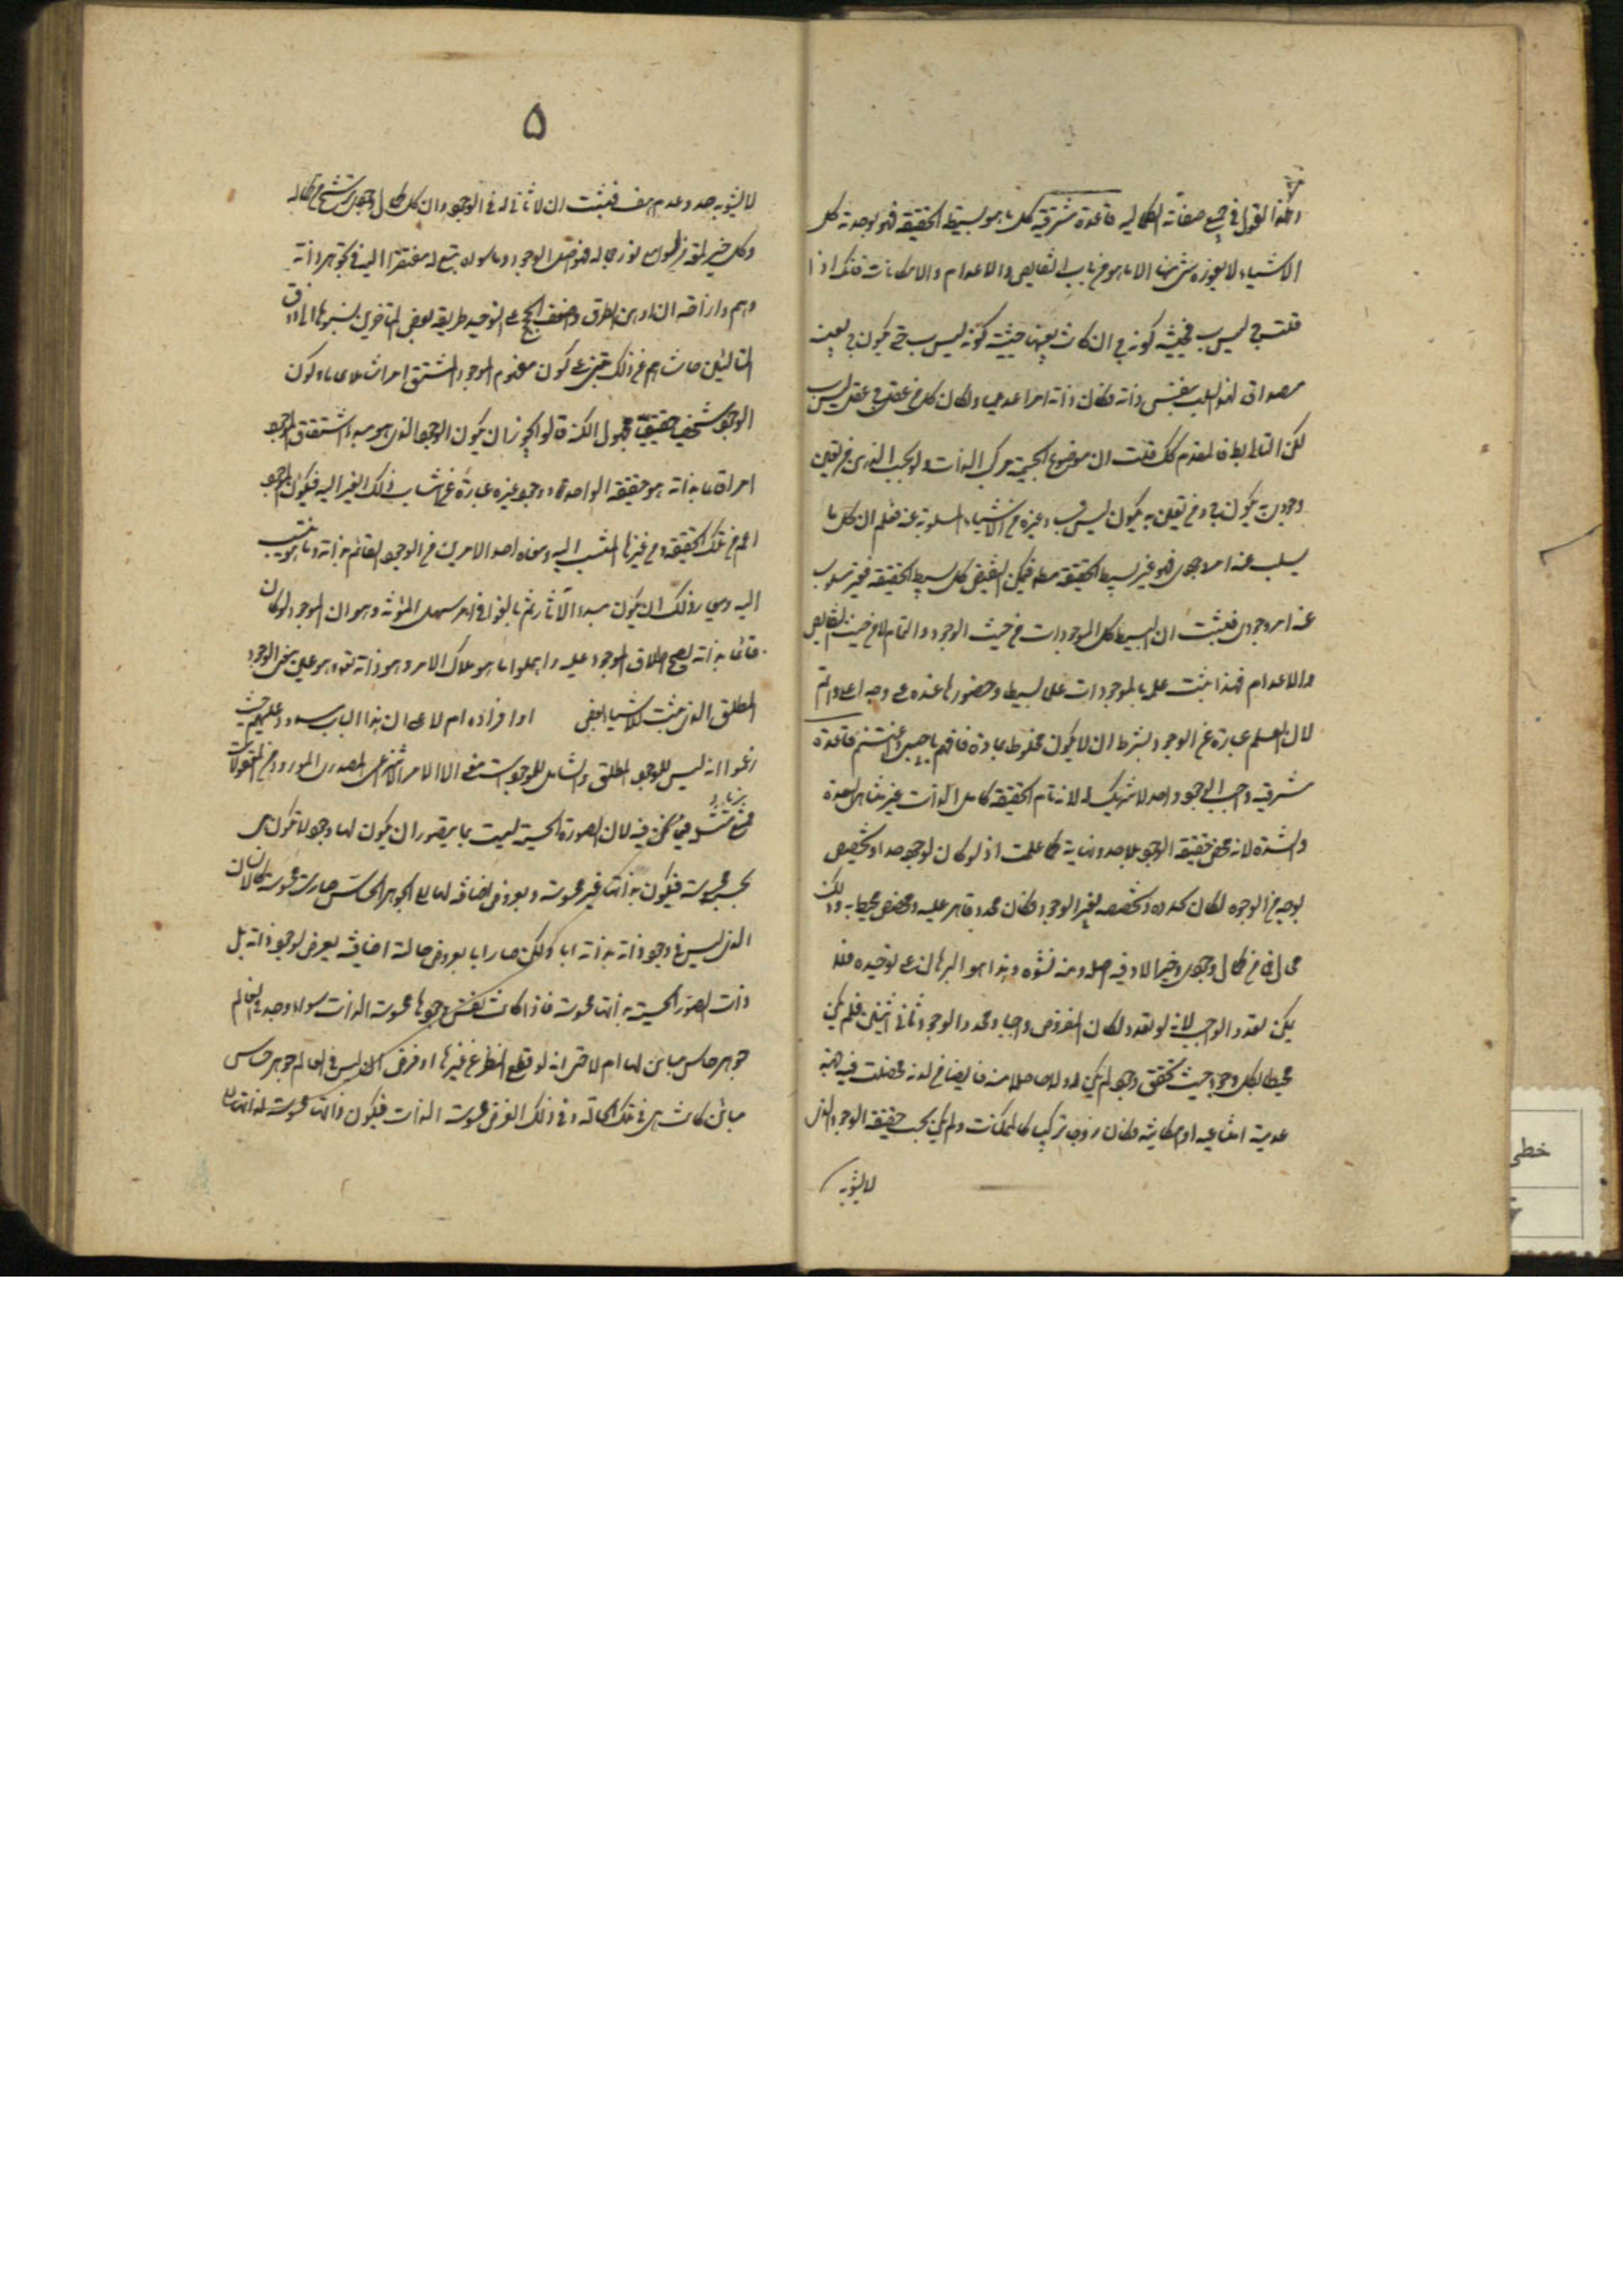 وهكذا القول في جميع صفاته الكماليه قاعدة مشرقيه كل ما هو بسيط الحقيقه فهو بوحدته كل
الاشياء لا يعوزه شئ منها الا ما هو من باب النقايص والاعدام والامكانات فانك اذا
قلت ج ليس ب فحيثية كونه ج ان كانت بعينها حيثية كونه ليس ب حتى يكون ج بعينه
مصداق لهذا السلب بنفس ذاته فكان ذاته امرا عدميا ولكان كل من عقل ج عقل ليس ب
لكن التالي باطل فالمقدم كك فثبت ان موضوع الجيمية مركب الذات ولو بحسب الذهن من معنى
وجودي به يكون ج ومن معنى به يكون ليس ب وغيره من الاشياء المسلوبة عنه فعلم ان كل ما
يسلب عنه امر وجودي فهو غير بسيط الحقيقة مطلقا فبعكس النقيض كل بسيط الحقيقه فغير مسلوب
عنه امر وجودي فثبت ان البسيط كل الموجودات من حيث الوجود والتمام لا من حيث النقايص
والاعدام فبهذا يثبت علمه بالموجودات علم بسيط وحضورها عنده على وجه اعلى واتم
لان العلم عبارة عن الوجود بشرط ان لا يكون مخلوط بمادة فافهم يا حبيبي واغتنم قاعدة
مشرقيه واجب الوجود واحد لا شريك له لانه تام الحقيقه كامل الذات غير متناهي القوة
والشدة لانه محض حقيقة الوجود بلا حد ونهاية كما علمت اذ لو كان لوجوده حد او تخصص
بوجه من الوجوه لكان تحدده وتخصصه بغير الوجود فكان له محدد قاهر عليه ومخصص محيط به وذلك
محال فما من كمال وجودي وخير الا وفيه اصله ومنه نشوه وهذا هو البرهان على توحيده فلا
يمكن تعدد الواجب لانه لو تعدد لكان المفروض واجبا محدد الوجود ثاني اثنين فلم يكن
محيطا بكل وجود حيث تحقق وجود لم يكن له ولا حاصلا منه فايضا من لدنه فحصلت فيه جهة
عدمية امتناعيه او امكانيه فكان زوج تركيبي كالممكنات ولم يكن بحت حقيقة الوجود الذي
لا يشوبه
۵
لا يشوبه حد وعدم هف فثبت ان لا ثاني له في الوجود وان كل كمال وجودي رشح من كماله
وكل خير لمعة من لوامع نور جماله فهو اصل الوجود وما سواه تبع له مفتقرا اليه في تجوهر ذاته
وهم وازاحه ان اوهن الطرق واضعف الحجج على التوحيد طريقه بعض المتاخرين نسبوها الى ذوق
المتالهين حاشاهم عن ذلك تبتني على كون مفهوم الموجود المشتق امرا شاملا وكون
الوجود شخصا حقيقيا مجهول الكنه قالوا يجوز ان يكون الوجود الذي هو مبدا اشتقاق الموجود
امرا قائما بذاته هو حقيقة الواجب ووجود غيره عبارة عن انتساب ذلك الغير اليه فيكون الموجود
اعم من تلك الحقيقه ومن غيرها المنتسب اليه ومعناه احد الامرين من الوجود القائم بذاته وما هو منتسب
اليه ومعيار ذلك ان يكون مبدا الآثار ثم بالغوا في امر سهل المؤنة وهو ان الموجود لو كان
قائما بذاته يصح اطلاق الموجود عليه واهملوا ما هو ملاك الامر وهو ذاته تعالى هو عين معنى الوجود
المطلق الذي يثبت للاشياء بعض او افراده ام لا على ان هذا الباب مسدود عليهم حيث
زعموا انه ليس للوجود المطلق والشامل للموجودات معنى الا الامر الانتزاعي المصدري المعدود من المعقولات
لان الصورة الحسية ليست بما يتصور ان يكون لها وجود لا تكون هي
بحسبه محسوسة فيكون بذاتها غير محسوسة وبعروض اضافة لها الى الجوهر الحاس صارت محسوسة كما ان الانسان
الذي ليس في وجود ذاته بذاته ابا ولكن صار ابا بعروض حالة اضافيه يعرض لوجود ذاته بل
ذات الصور الحسية بذاتها محسوسة فاذا كانت نفس وجودها محسوسة الذات سواء وجد في العالم
جوهر حاس مباين لها ام لا حتى انه لو قطع النظر عن غيرها او فرض انه ليس في العالم جوهر حاس
مباين كانت هي في تلك الحالة وفي ذلك الفرض محسوسة الذات فيكون ذاتها محسوسة لذاتها
خطى